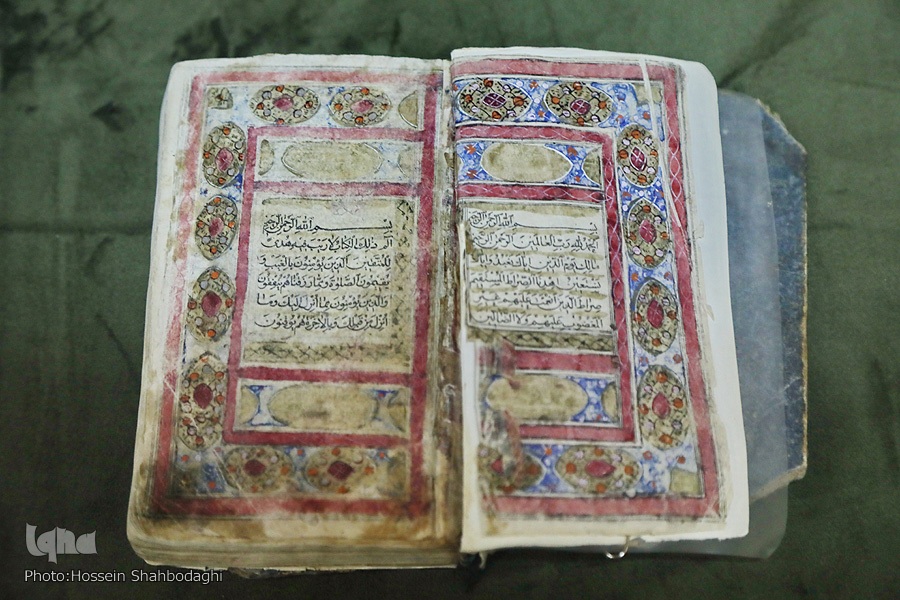 بسم الله الرحمن الرحيم
الحمد لله رب العالمين الرحمن الرحيم
مالك يوم الدين اياك نعبد واياك
نستعين اهدنا الصراط المستقيم
صراط الذين انعمت عليهم غير
المغضوب عليهم ولا الضالين
بسم الله الرحمن الرحيم
الم ذلك الكتاب لا ريب فيه هدى
للمتقين الذين يؤمنون بالغيب و
يقيمون الصلوة ومما رزقناهم ينفقون
والذين يؤمنون بما انزل اليك وما
انزل من قبلك وبالاخرة هم يوقنون
Iqna
Photo:Hossein Shahbodaghi